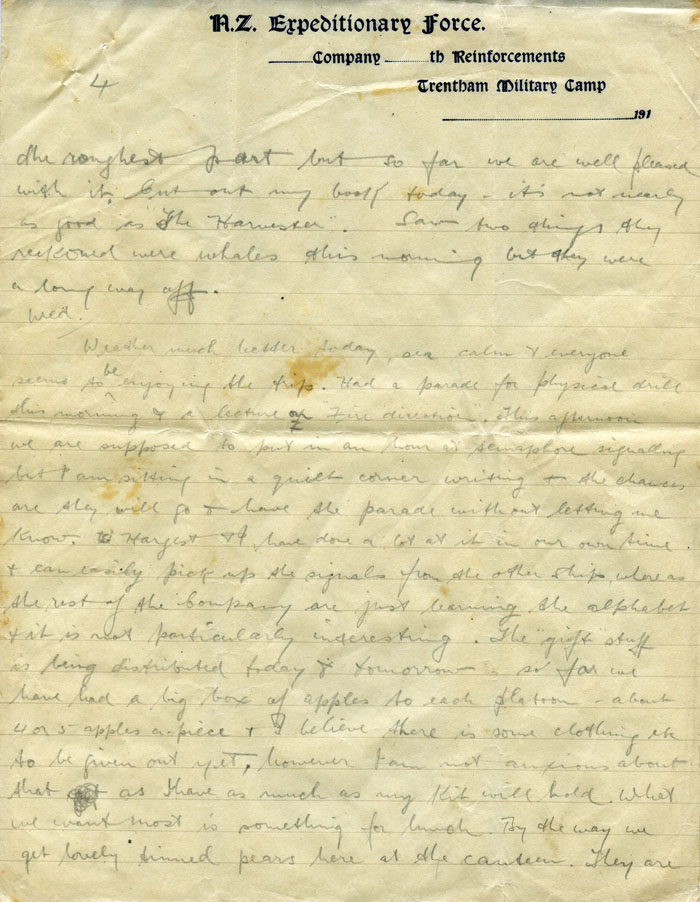 N.Z. Expeditionary Force.
Company th Reinforcements
Trentham Military Camp
191
4
the roughest part but so far we are well pleased
with it, Cut out my book today - it's not nearly
as good as "The Harvester". Saw two things they
reckoned were whales this morning but they were
a long way off.
Wed.
Weather much better today, sea calm & everyone
seems to be enjoying the trip. Had a parade for physical drill
this morning & a lecture on "Fire direction". This afternoon
we are supposed to put in an hour at semaphore signalling
but I am sitting in a quiet corner writing & the chances
are they will go & have the parade without letting me
know. Hargest & I have done a lot at it in our own time
& can easily pick up the signals from the other ships, whereas
the rest of the Company are just learning the alphabet
& it is not particularly interesting. The "gift stuff
is being distributed today & tomorrow - so far we
have had a big box of apples to each platoon - about
4 or 5 apples a piece & I believe there is some clothing etc
to be given out yet, however I am not anxious about
that as I have as much as my kit will hold. What
we want most is something for lunch. By the way we
get lovely tinned pears here at the canteen. They are